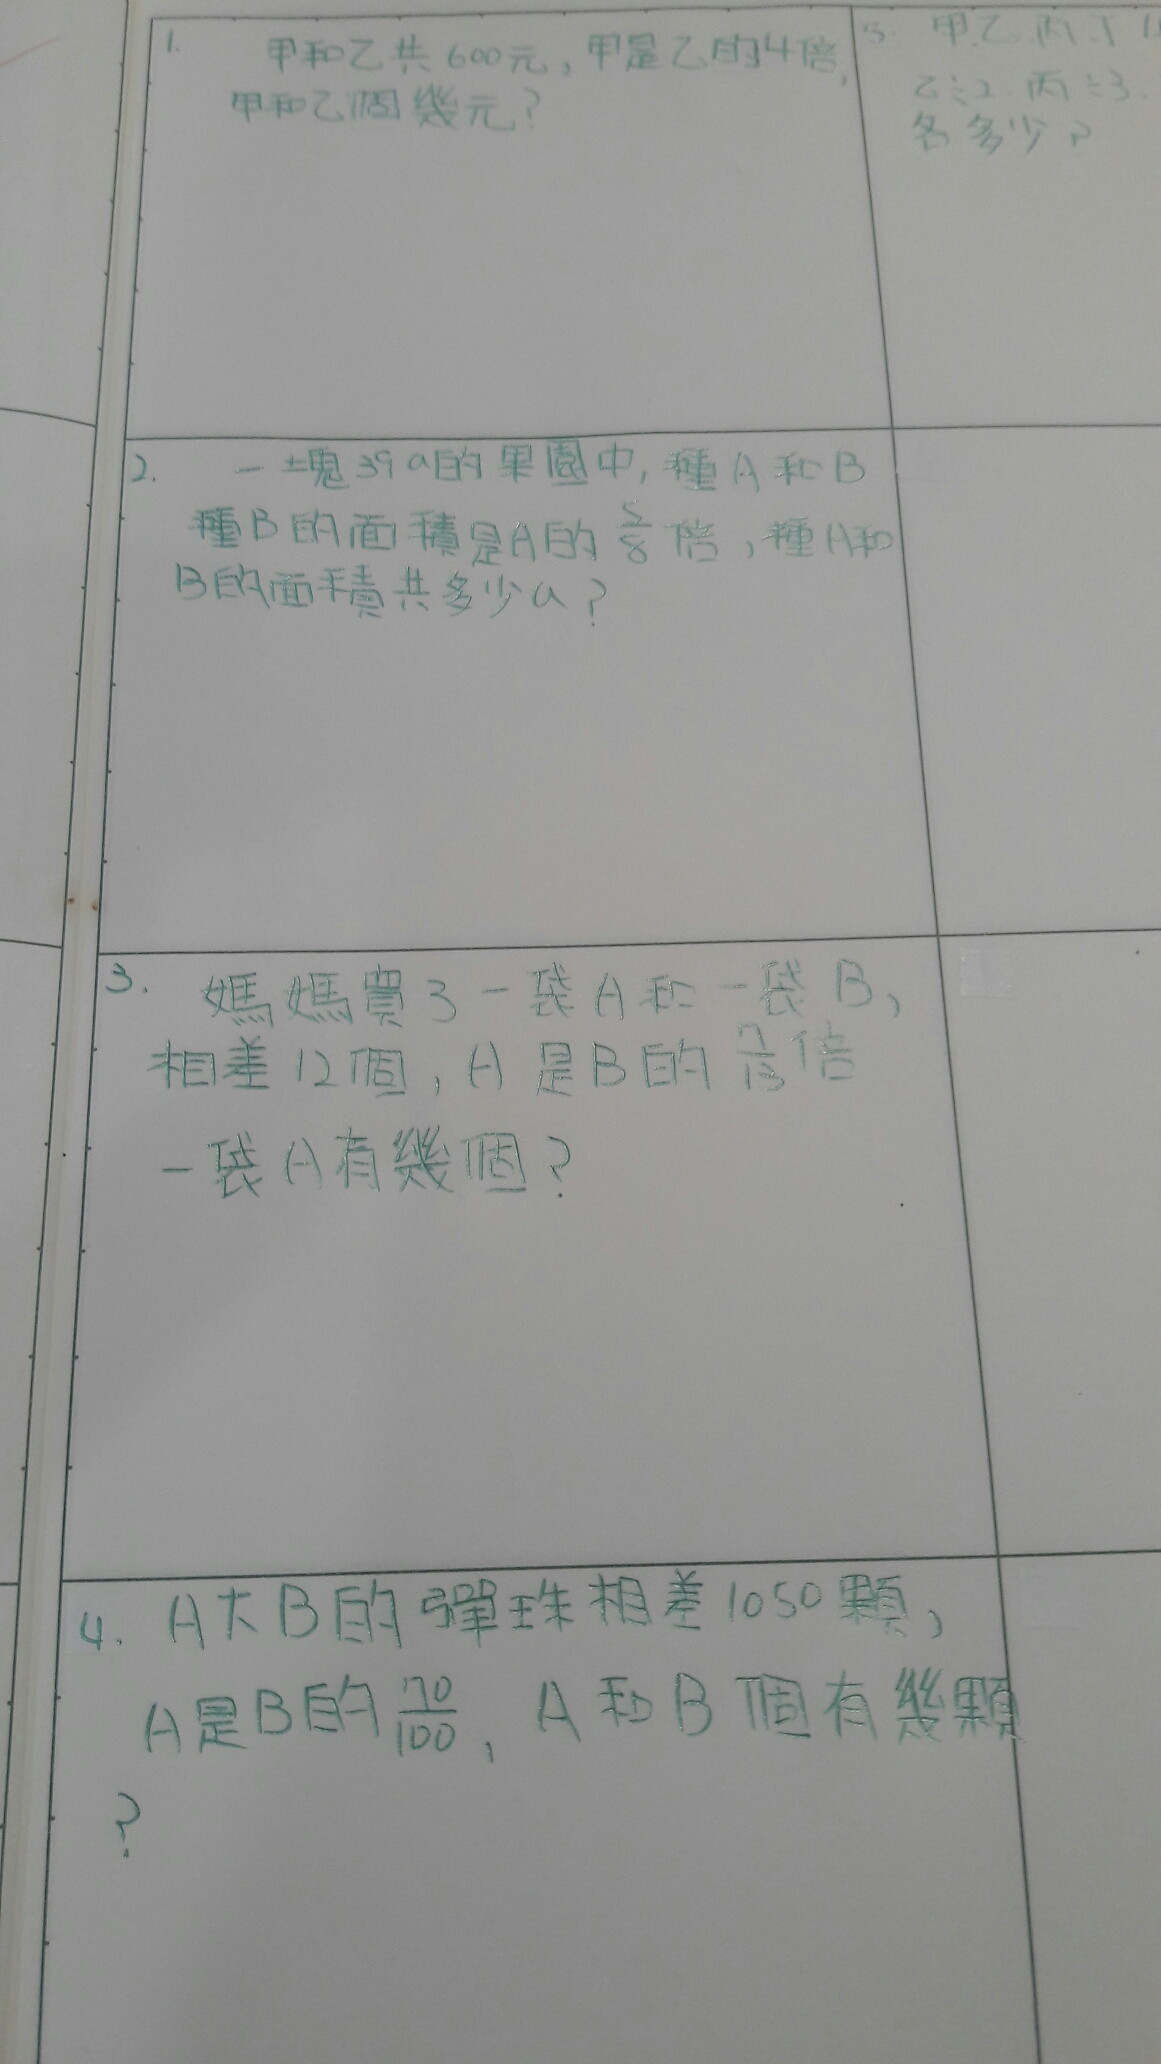 1. 甲和乙共600元,甲是乙的4倍,
甲和乙個幾元?
2. 一塊39a的果園中,種A和B
種B的面積是A的5/8倍,種A和
B的面積共多少a?
3. 媽媽買3一袋A和一袋B,
相差12個,A是B的7/13倍
一袋A有幾個?
4. A大B的彈珠相差1050顆,
A是B的70/100,A和B個有幾顆
?
5. 甲.乙.丙.丁
乙÷2.丙÷3.
各多少?